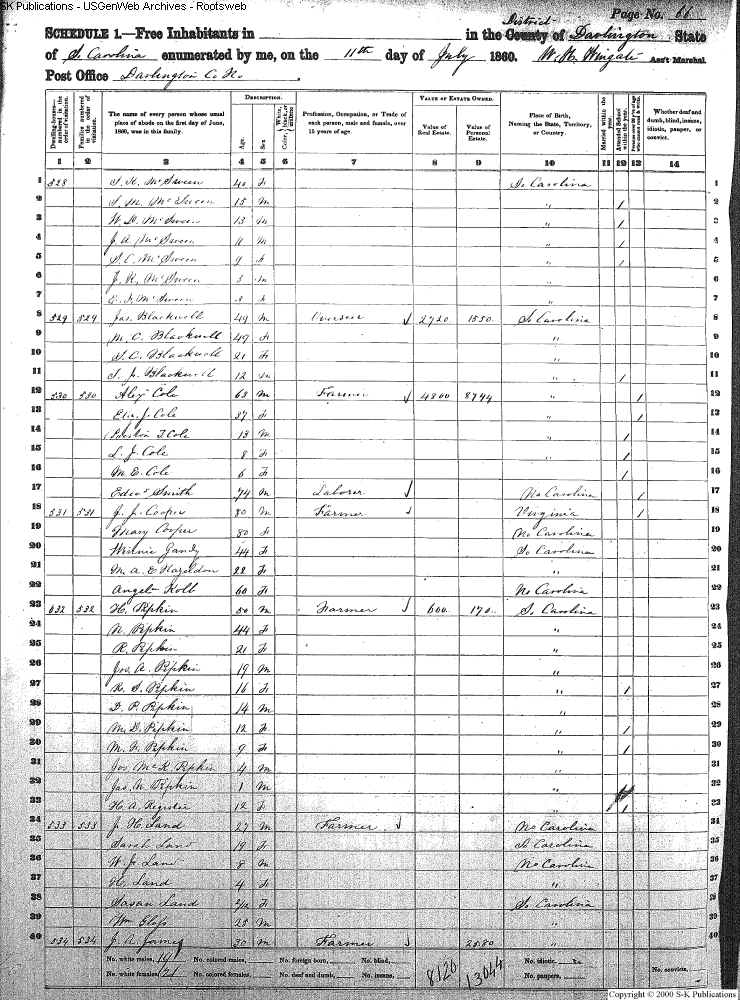 SK Publications - USGenWeb Archives - Rootsweb
Page No. 66
SCHEDULE 1.—Free Inhabitants in in the County of District Darlington State
of S. Carolina enumerated by me, on the 11th day of July 1860. W. H. Wingate Ass't Marshal.
Post Office Darlington C. Ho.
DESCRIPTION. VALUE OF ESTATE OWNED.
Dwelling-houses—numbered in the order of visitation. Families numbered in the order of visitation. The name of every person whose usual place of abode on the first day of June, 1860, was in this family. Age. Sex. Color, White, black, or mulatto. Profession, Occupation, or Trade of each person, male and female, over 15 years of age. Value of Real Estate. Value of Personal Estate. Place of Birth, Naming the State, Territory, or Country. Married within the year. Attended School within the year. Persons over 20 y'rs of age who cannot read & write. Whether deaf and dumb, blind, insane, idiotic, pauper, or convict.
1 2 3 4 5 6 7 8 9 10 11 12 13 14
1 528 McSween 40 F So Carolina 1
2 S. M. McSween 15 M " / 2
3 McSween 13 M " / 3
4 J. A. McSween 11 M " / 4
5 S. C. McSween 9 F " / 5
6 J. R. McSween M " 6
7 McSween 3 F " 7
8 529 529 Jas. Blackwell 49 M Overseer 2720 1550 So Carolina 8
9 M. C. Blackwell 49 F " 9
10 S. C. Blackwell 21 F " 10
11 Blackwell 12 M " / 11
12 530 530 Alex Cole 63 M Farmer 4800 8744 " / 12
13 Eliz. J. Cole 37 F " / 13
14 Preston T. Cole 13 M " / 14
15 L. J. Cole 8 F " / 15
16 M. E. Cole 6 F " / 16
17 Edw Smith 74 M Laborer No Carolina / 17
18 531 531 J. J. Cooper 80 M Farmer Virginia / 18
19 Mary Cooper 80 F No Carolina 19
20 Winnie Gandy 44 F So Carolina 20
21 M. A. 22 F " 21
22 Angel Kolb 60 F No Carolina 22
23 532 532 H. Pipkin 50 M Farmer 600 170 So Carolina 23
24 N. Pipkin 44 F " 24
25 R. Pipkin 21 F " 25
26 Jos. A. Pipkin 19 M " 26
27 R. S. Pipkin 16 F " / 27
28 D. P. Pipkin 14 M " 28
29 M. D. Pipkin 12 F " / 29
30 Pipkin 9 F " / 30
31 Jos. McK. Pipkin 4 M " 31
32 Jas. N. Pipkin 1 M " 32
33 H. A. Register 12 F " / 23
34 533 533 J. H. Land 27 M Farmer No Carolina 34
35 Sarah Land 19 F So Carolina 35
36 W. J. Land 8 M No Carolina 36
37 H. Land 4 F 37
38 Susan Land F So Carolina 38
39 Wm 25 M " 39
40 534 534 J. A. James 30 M Farmer 2580 " 40
No. white males, 19 No. colored males, No. foreign born, No. blind, 8120 13044 No. idiotic,
No. white females, 21 No. colored females, No. deaf and dumb, No. insane, No. paupers, No. convict,
Copyright © 2000 S-K Publications